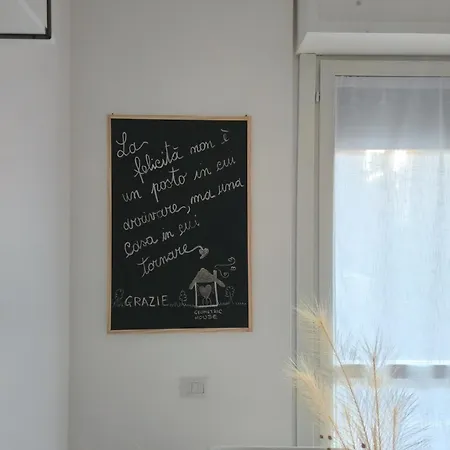 La
felicità non è
un posto in cui
arrivare, ma una
casa in cui
tornare
GRAZIE
GEOMETRIC
HOUSE